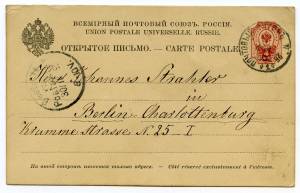 ВСЕМІРНЫЙ ПОЧТОВЫЙ СОЮЗЪ. РОССІЯ.
UNION POSTALE UNIVERSELLE. RUSSIE.
ОТКРЫТОЕ ПИСЬМО. — CARTE POSTALE.
Johannes Strahler
in
Berlin-Charlottenburg
Krumme Strasse N. 25-I
На этой сторонѣ пишется только адресъ. — Côté réservé exclusivement à l'adresse.